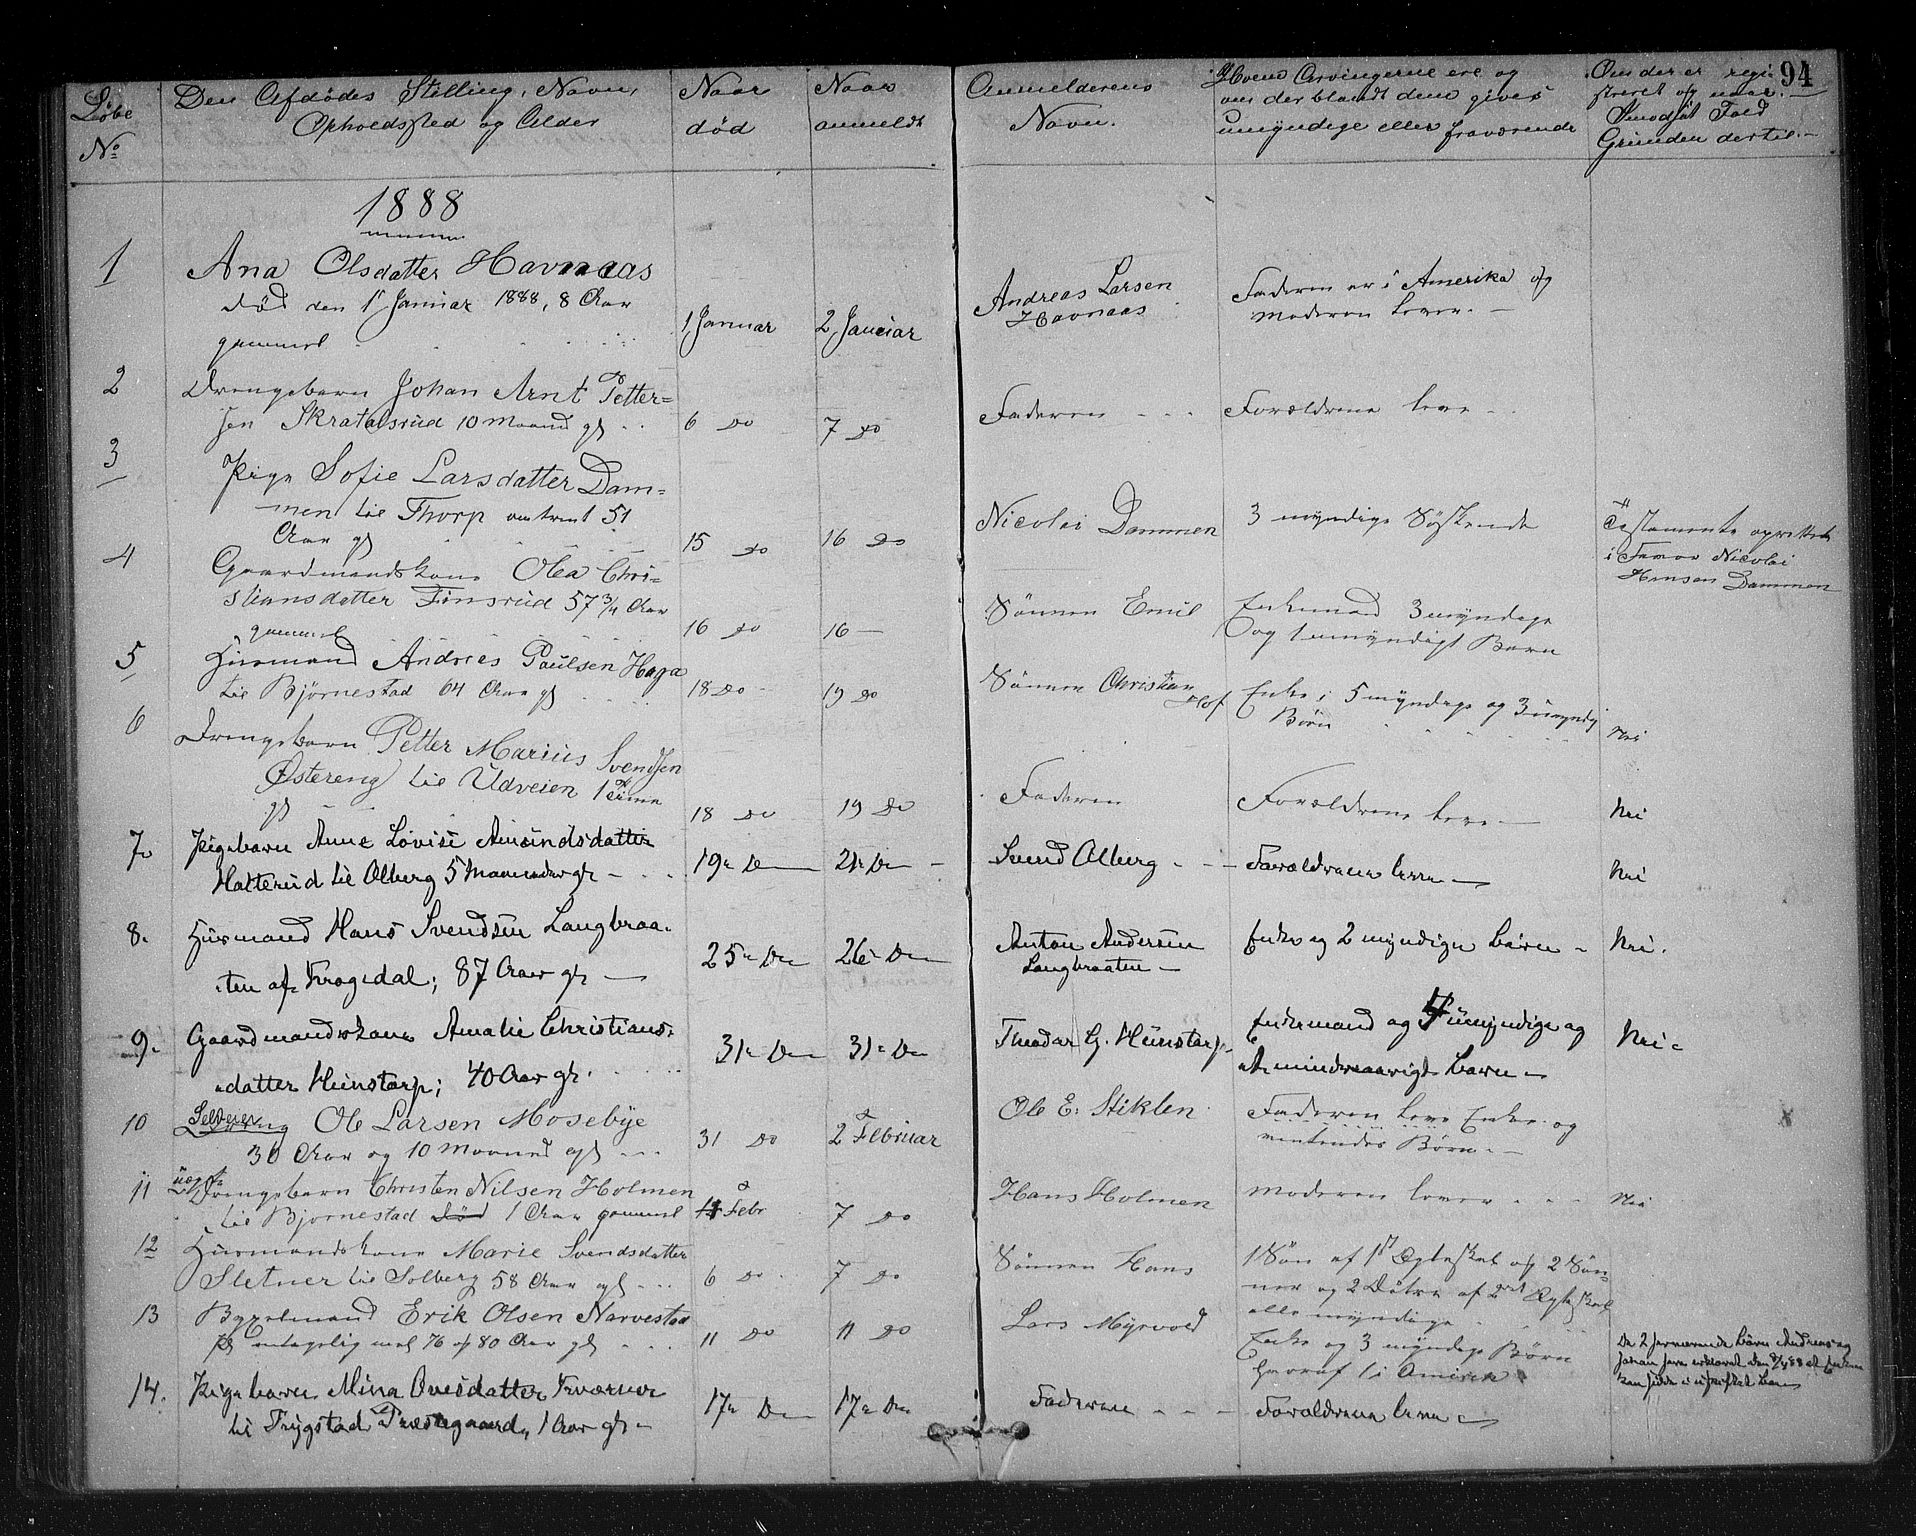 94
Løbe
No
Den Afdødes Stilling, Navn,
Opholdssted og Alder
Naar
død
Naar
anmeldt
Anmelderens
Navn.
Hvem Arvingerne ere og
om der blandt dem gives
umyndige eller fraværende
Om der er regi-
streret og naar.
I modsat Fald
Grunden dertil.
1888
1
Ana Olsdatter Havnaas
død den 1 Januar 1888, 8 Aar
gammel
1 Januar
2 Januar
Andreas Larsen
Havnaas
Faderen er i Amerika og
moderen lever.
2
Drengebarn Johan Arnt Petter=
sen Skratalsrud 10 maaned gl
6 Do
7 Do
Faderen
Forældrene leve
3
Pige Sofie Larsdatter Dam=
men lie Thorp omtrent 51
Aar gl
15 Do
16 Do
Nicolai Dammen
3 myndige Søskende
Testamente oprettet
i Nicolai
Hansen Dammen
4
Gaardmandskone Olea Chri=
stiansdatter Finsrud 57 3/4 Aar
gammel
16 Do
16 —
Sønnen Emil
Enkemand 3 myndige
og 1 umyndigt Barn
5
Husmand Andreas Paulsen Haga
lie Bjørnestad 64 Aar gl
18 Do
19 Do
Sønnen Christian
Olof
Enke i 5 myndige og 3 umyndig
Børn
Nei
6
Drengebarn Petter Marius Svendsen
Østereng lie Udveien 1 time
gl
18 Do
19 Do
Faderen
Forældrene leve
Nei
7.
Pigebarn Anne Lovise Amundsdatter
Halterud lie Olberg 5 Maaneder gl
19 Do
21 Do
Svend Olberg
Forældrene leve
Nei
8.
Husmand Hans Svendsen Langbraa-
ten af Krogedal; 87 Aar gl
25 Do
26 Do
Anton Andersen
Langbraaten
Enke og 2 myndige børn
Nei.
9.
Gaardmandskone Amalie Christians-
datter Heinstorp; 40 Aar gl.
31 Do
31 Do
Theodor G. Heinstorp
Enkemand og 4 umyndige og
mindreaarige børn
Nei
10
Selveier
Ole Larsen Mosebye
30 Aar og 10 maaned gl
31 Do
2 Februar
Ole E. Stiklen
Faderen leve Enke og
ventendes Børn.
11
uægte
Drengebarn Christen Nilsen Holmen
lie Bjørnestad død 1 Aar gammel
Febr
7 Do
Hans Holmen
moderen lever
Nei
12
Husmandskone Marie Svendsdatter
Sletner lie Solberg 58 Aar gl
6 Do
7 Do
Sønnen Hans
1 Søn af 1st Ægteskab og 2 Søn-
ner og 2 Døtre af 2det Ægteskab
alle myndige
13
Bygselmand Erik Olsen Narvestad
antagelig mel 76 og 80 Aar gl
11 Do
11 Do
Lars Myrvold
Enke og 3 myndige Børn
hvoraf 1 i Amerika
De 2 fraværende børn Andreas og
Johan have erklæret den 88 at Enken
kan sidde i uskiftet bo
14.
Pigebarn Mina Ovesdatter Kværner
lie Trygstad Præstegaard, 1 Aar gl
17 Do
17 Do
Faderen
Forældrene leve